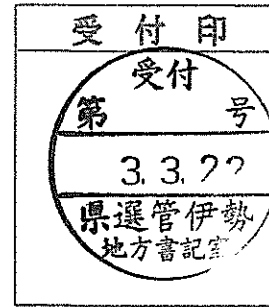 受付印
受付
第 号
3.3.22
県選管伊勢
地方書記室